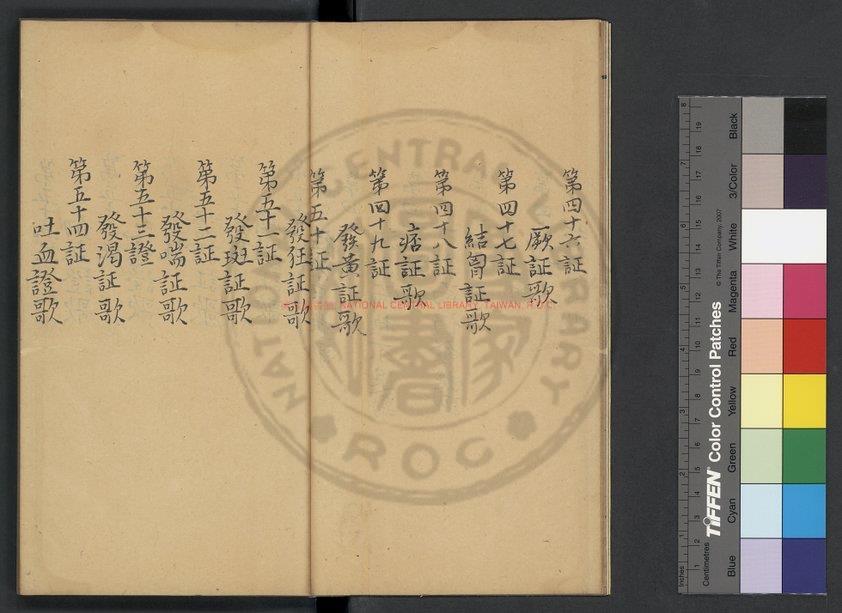 第四十六証
厥証歌
第四十七証
結胷証歌
第四十八証
痞証歌
第四十九証
發黃証歌
第五十証
發狂証歌
第五十一証
發斑証歌
第五十二証
發喘証歌
第五十三證
發渴証歌
第五十四証
吐血證歌
NATIONAL CENTRAL LIBRARY
ROC
NATIONAL CENTRAL LIBRARY, TAIWAN, R.O.C.
TIFFEN® Color Control Patches
© The Tiffen Company, 2007
Inches
Centimetres
Blue
Cyan
Green
Yellow
Red
Magenta
White
3/Color
Black